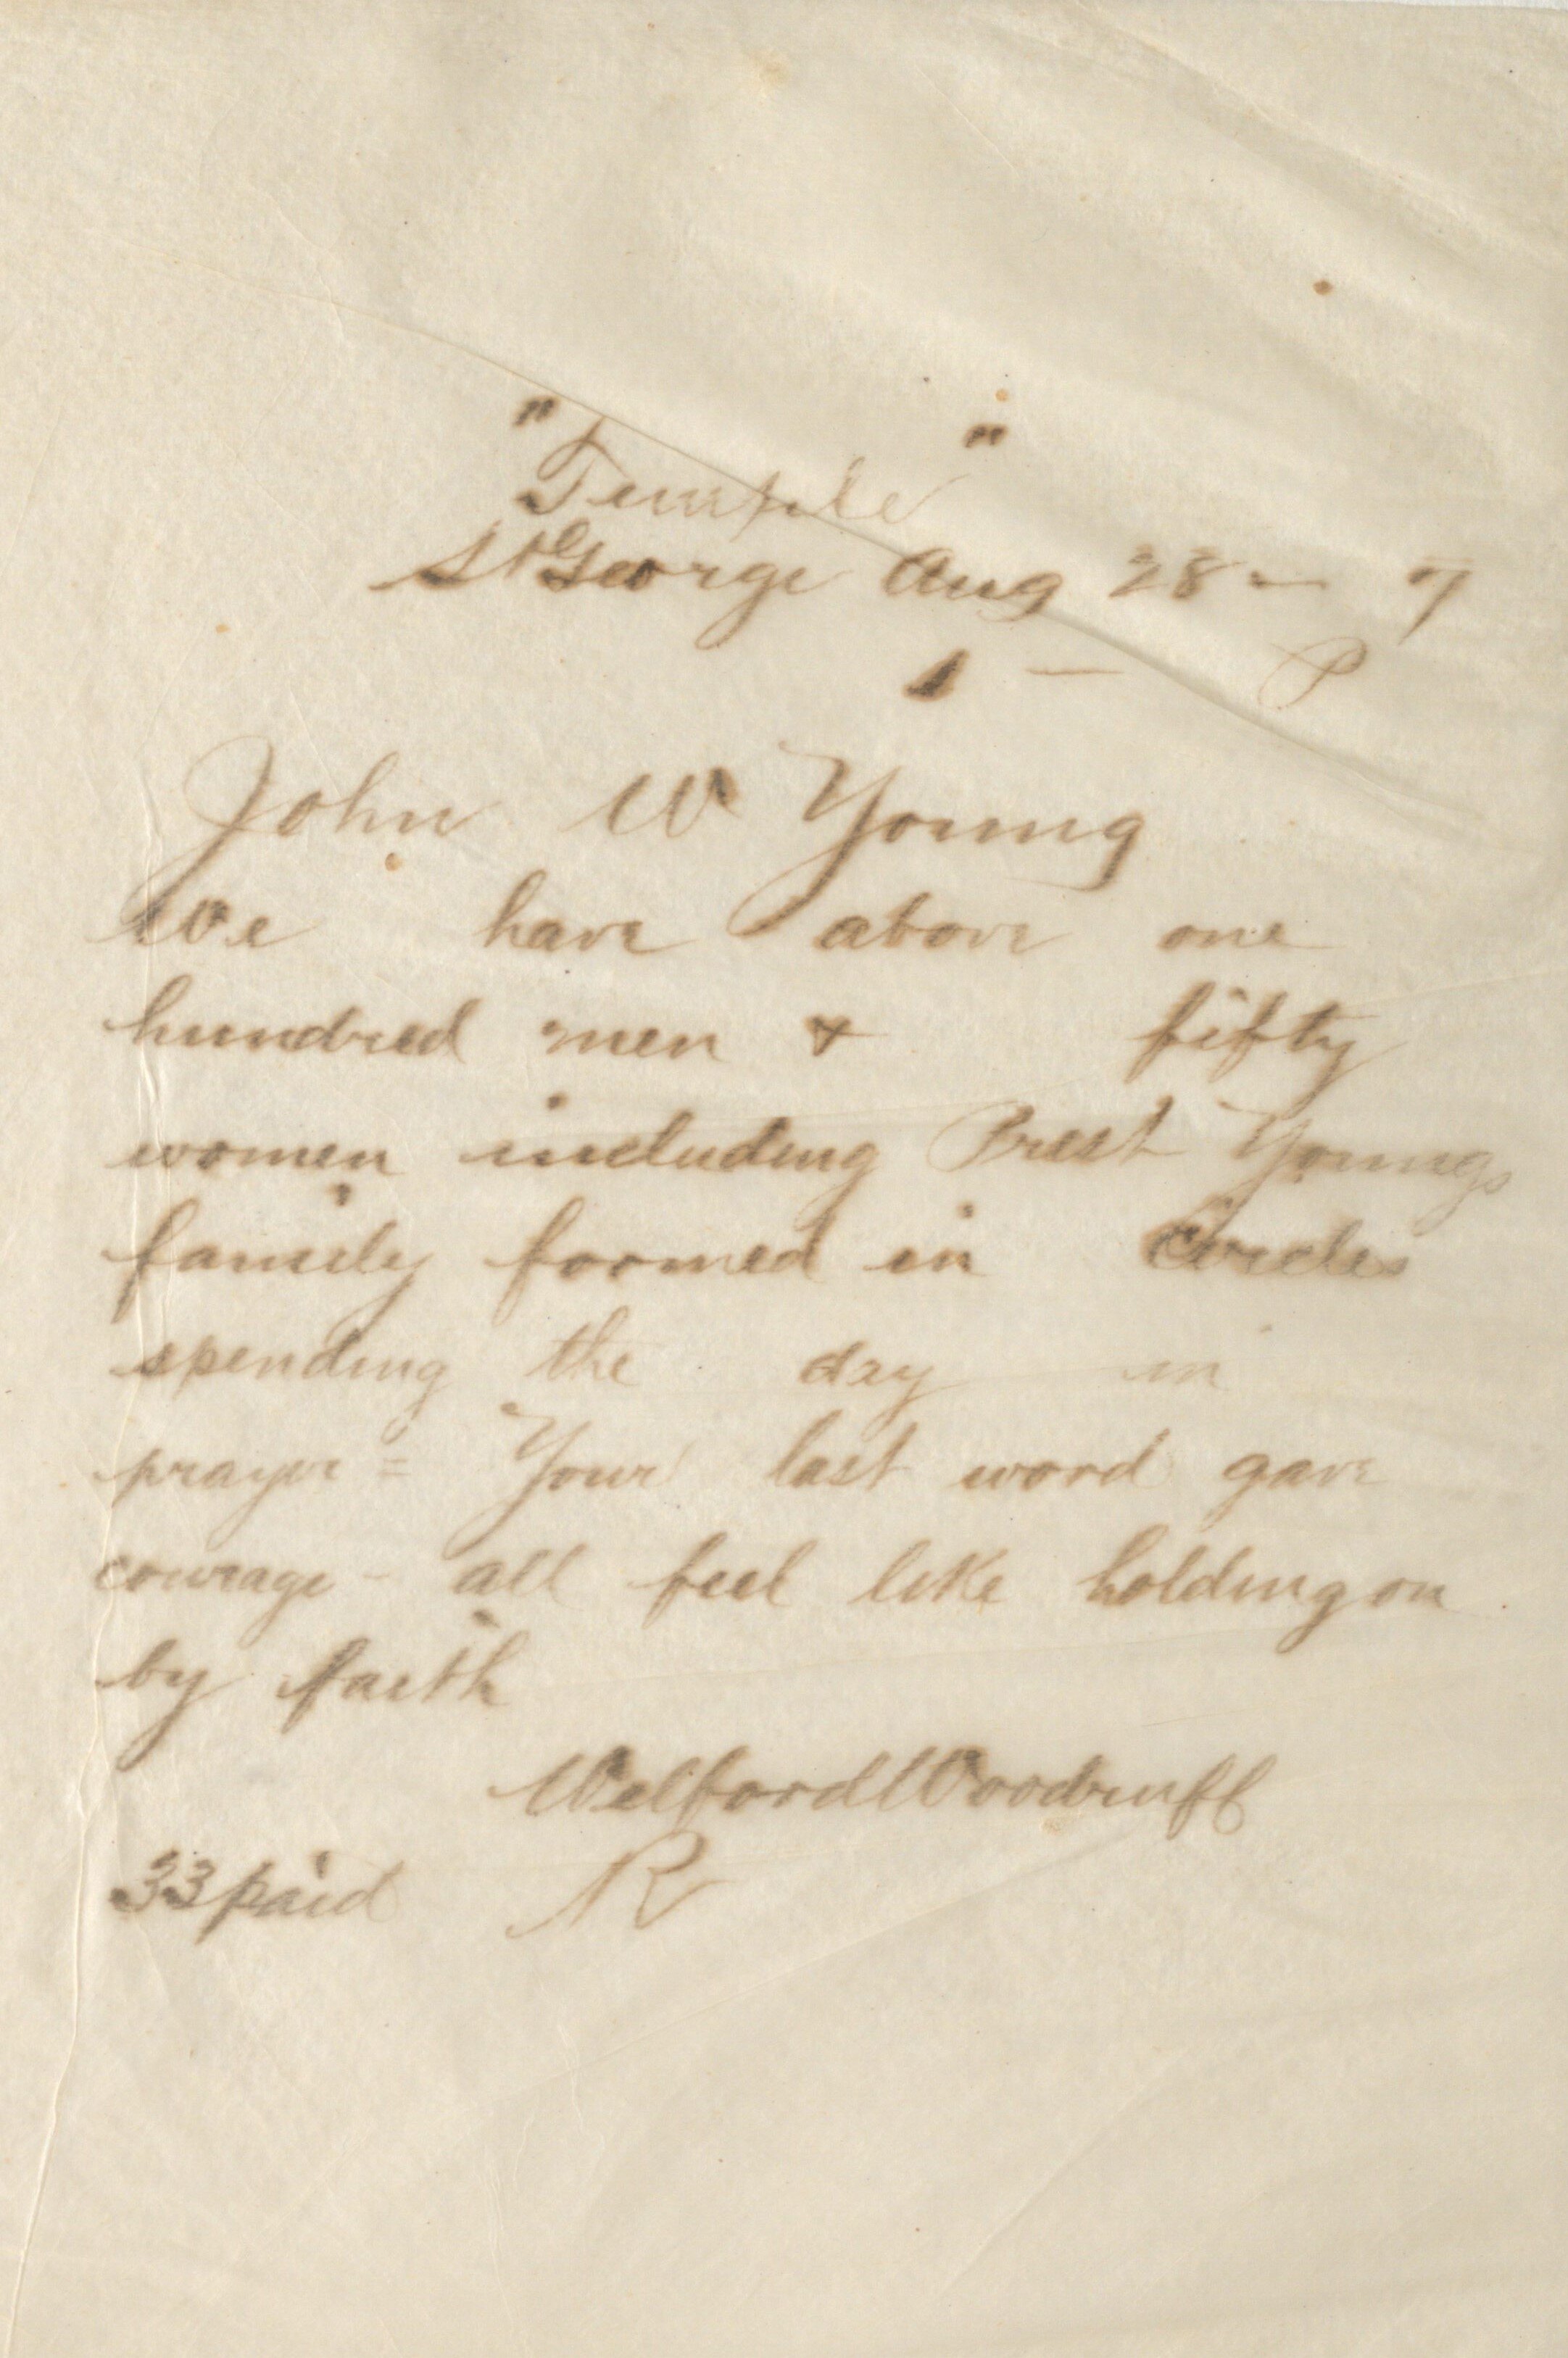 "Temple"
St George Aug 28 - 7
1 — P
John W Young
We have above one
hundred men & fifty
women including Prest Youngs
family formed in Circles
spending the day in
prayer = Your last word gave
courage - all feel like holding on
by faith
Wilford Woodruff
33 paid R